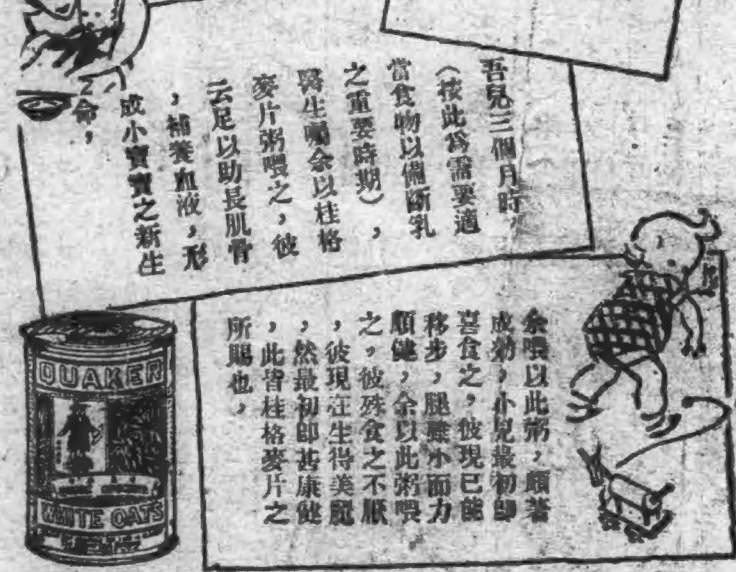 吾兒三個月時,
(按此爲需要適
當食物以備斷乳
之重要時期),
醫生囑余以桂格
麥片粥喂之,彼
云足以助長肌骨
,補養血液,形
成小寶寶之新生
命,
余喂以此粥,頗著
成効,小兒最初卽
喜食之,彼現已能
移步,腿雖小而力
頗健,余以此粥喂
之,彼殊食之不厭
,彼現在生得美麗
,然最初卽甚康健
,此皆桂格麥片之
所賜也,
QUAKER
WHITE OATS